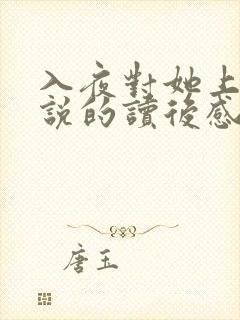 入夜對她上
說的讀後感
唐玉